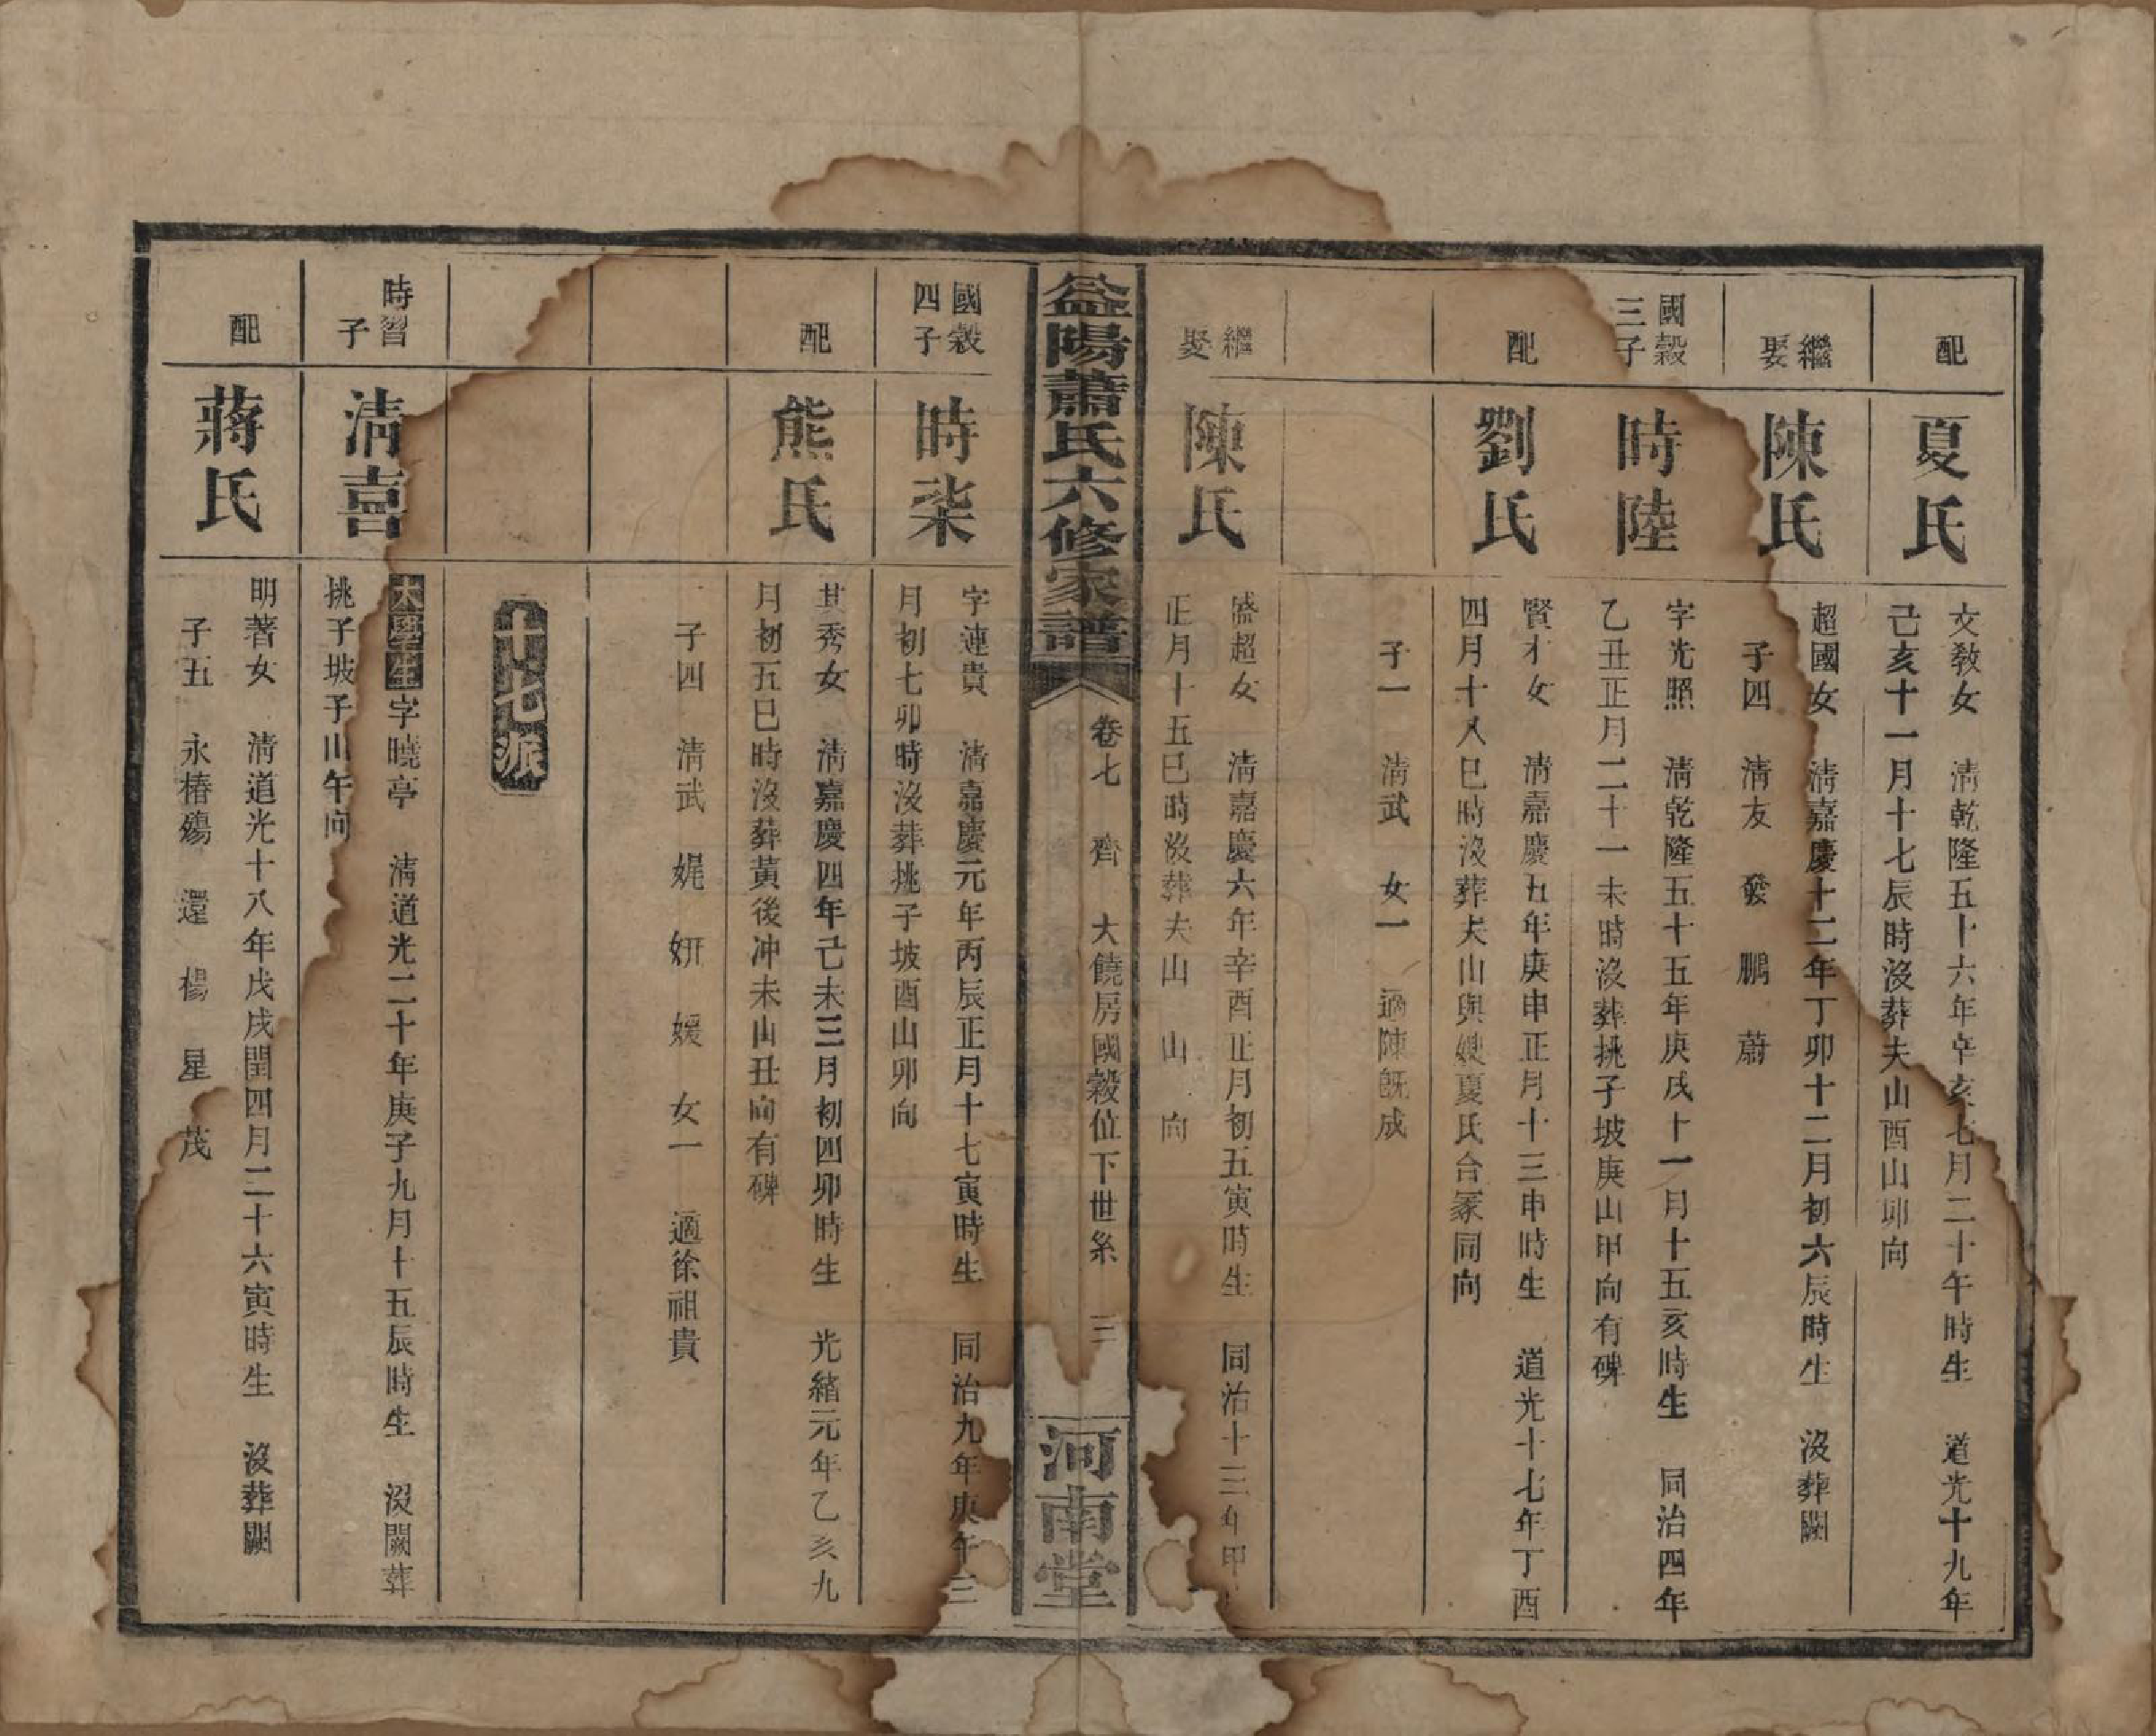 配
夏氏
文敎女　清乾隆五十六年辛亥七月二十午時生　道光十九年
己亥十一月十七辰時沒葬夫山酉山卯向
繼娶
陳氏
超國女　清嘉慶十二年丁卯十二月初六辰時生　沒葬闕
子四　清友　發　鵬　蔚
國穀三子
時陸
字光照　清乾隆五十五年庚戌十一月十五亥時生　同治四年
乙丑正月二十一未時沒葬挑子坡庚山甲向有碑
配
劉氏
賢才女　清嘉慶五年庚申正月十三申時生　道光十七年丁酉
四月十八巳時沒葬夫山與嫂夏氏合冢同向
子一　清武　女一　適陳旣成
繼娶
陳氏
盛超女　清嘉慶六年辛酉正月初五寅時生　同治十三年甲
正月十五巳時沒葬夫山　山　向
益陽蕭氏六修家譜
卷七　齊　大饒房國穀位下世系　三
河南堂
國穀四子
時柒
字連貴　清嘉慶元年丙辰正月十七寅時生　同治九年庚午三
月初七卯時沒葬挑子坡酉山卯向
配
熊氏
其秀女　清嘉慶四年己未三月初四卯時生　光緒元年乙亥九
月初五巳時沒葬黃後冲未山丑向有碑
子四　清武　娓　妍　媛　女一　適徐祖貴
十七派
時習子
清喜
太學生字曉亭　清道光二十年庚子九月十五辰時生　沒闕葬
挑子坡子山午向
配
蔣氏
明著女　清道光十八年戊戌閏四月二十六寅時生　沒葬闕
子五　永椿殤　還　楊　星　茂